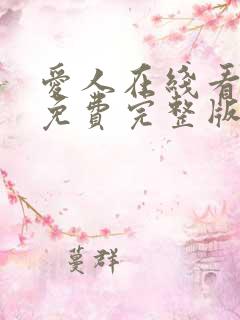 愛人在线看
免費完整版
蔓群